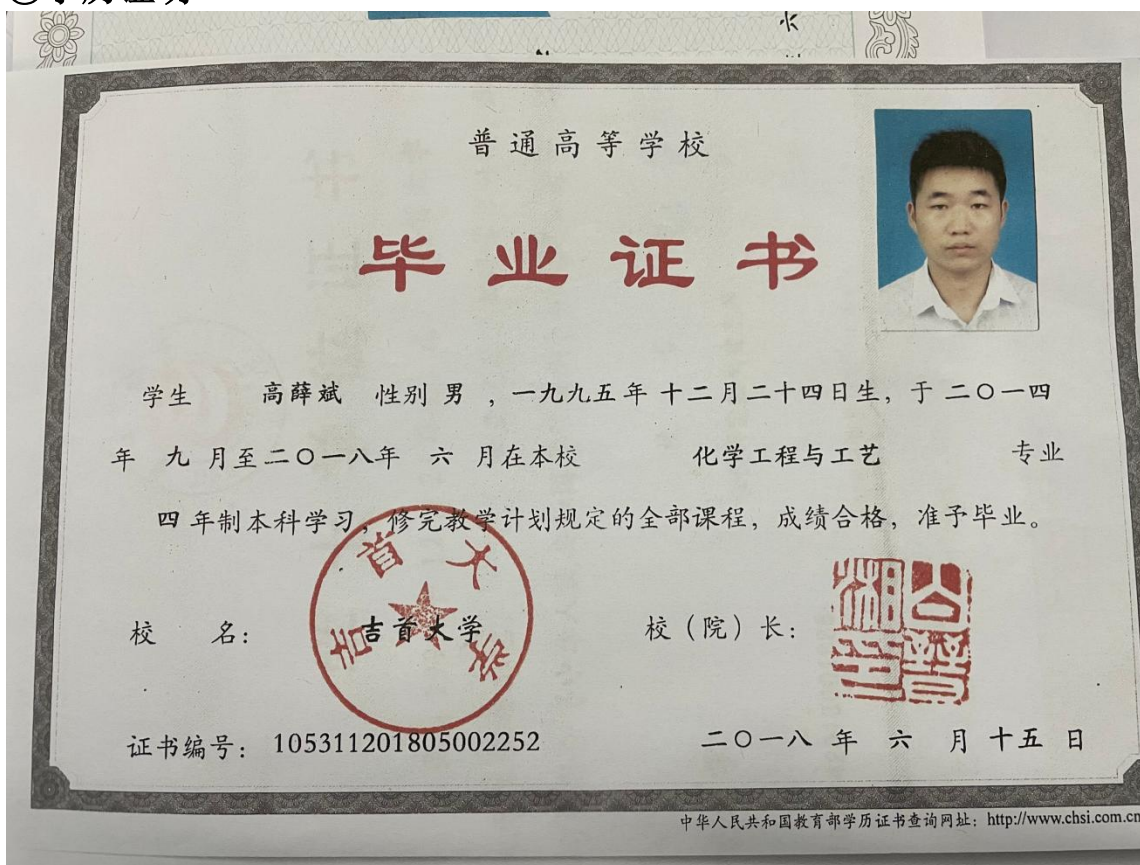 普通高等学校
毕业证书
学生 高薛斌 性别 男 ,一九九五年 十二月二十四日生,于 二〇一四
年 九 月至二〇一八年 六 月在本校 化学工程与工艺 专业
四 年制本科学习,修完教学计划规定的全部课程,成绩合格,准予毕业。
吉首大学
校 名: 吉首大学
校(院)长:
证书编号: 105311201805002252
二〇一八 年 六 月 十五 日
中华人民共和国教育部学历证书查询网址: http://www.chsi.com.cn